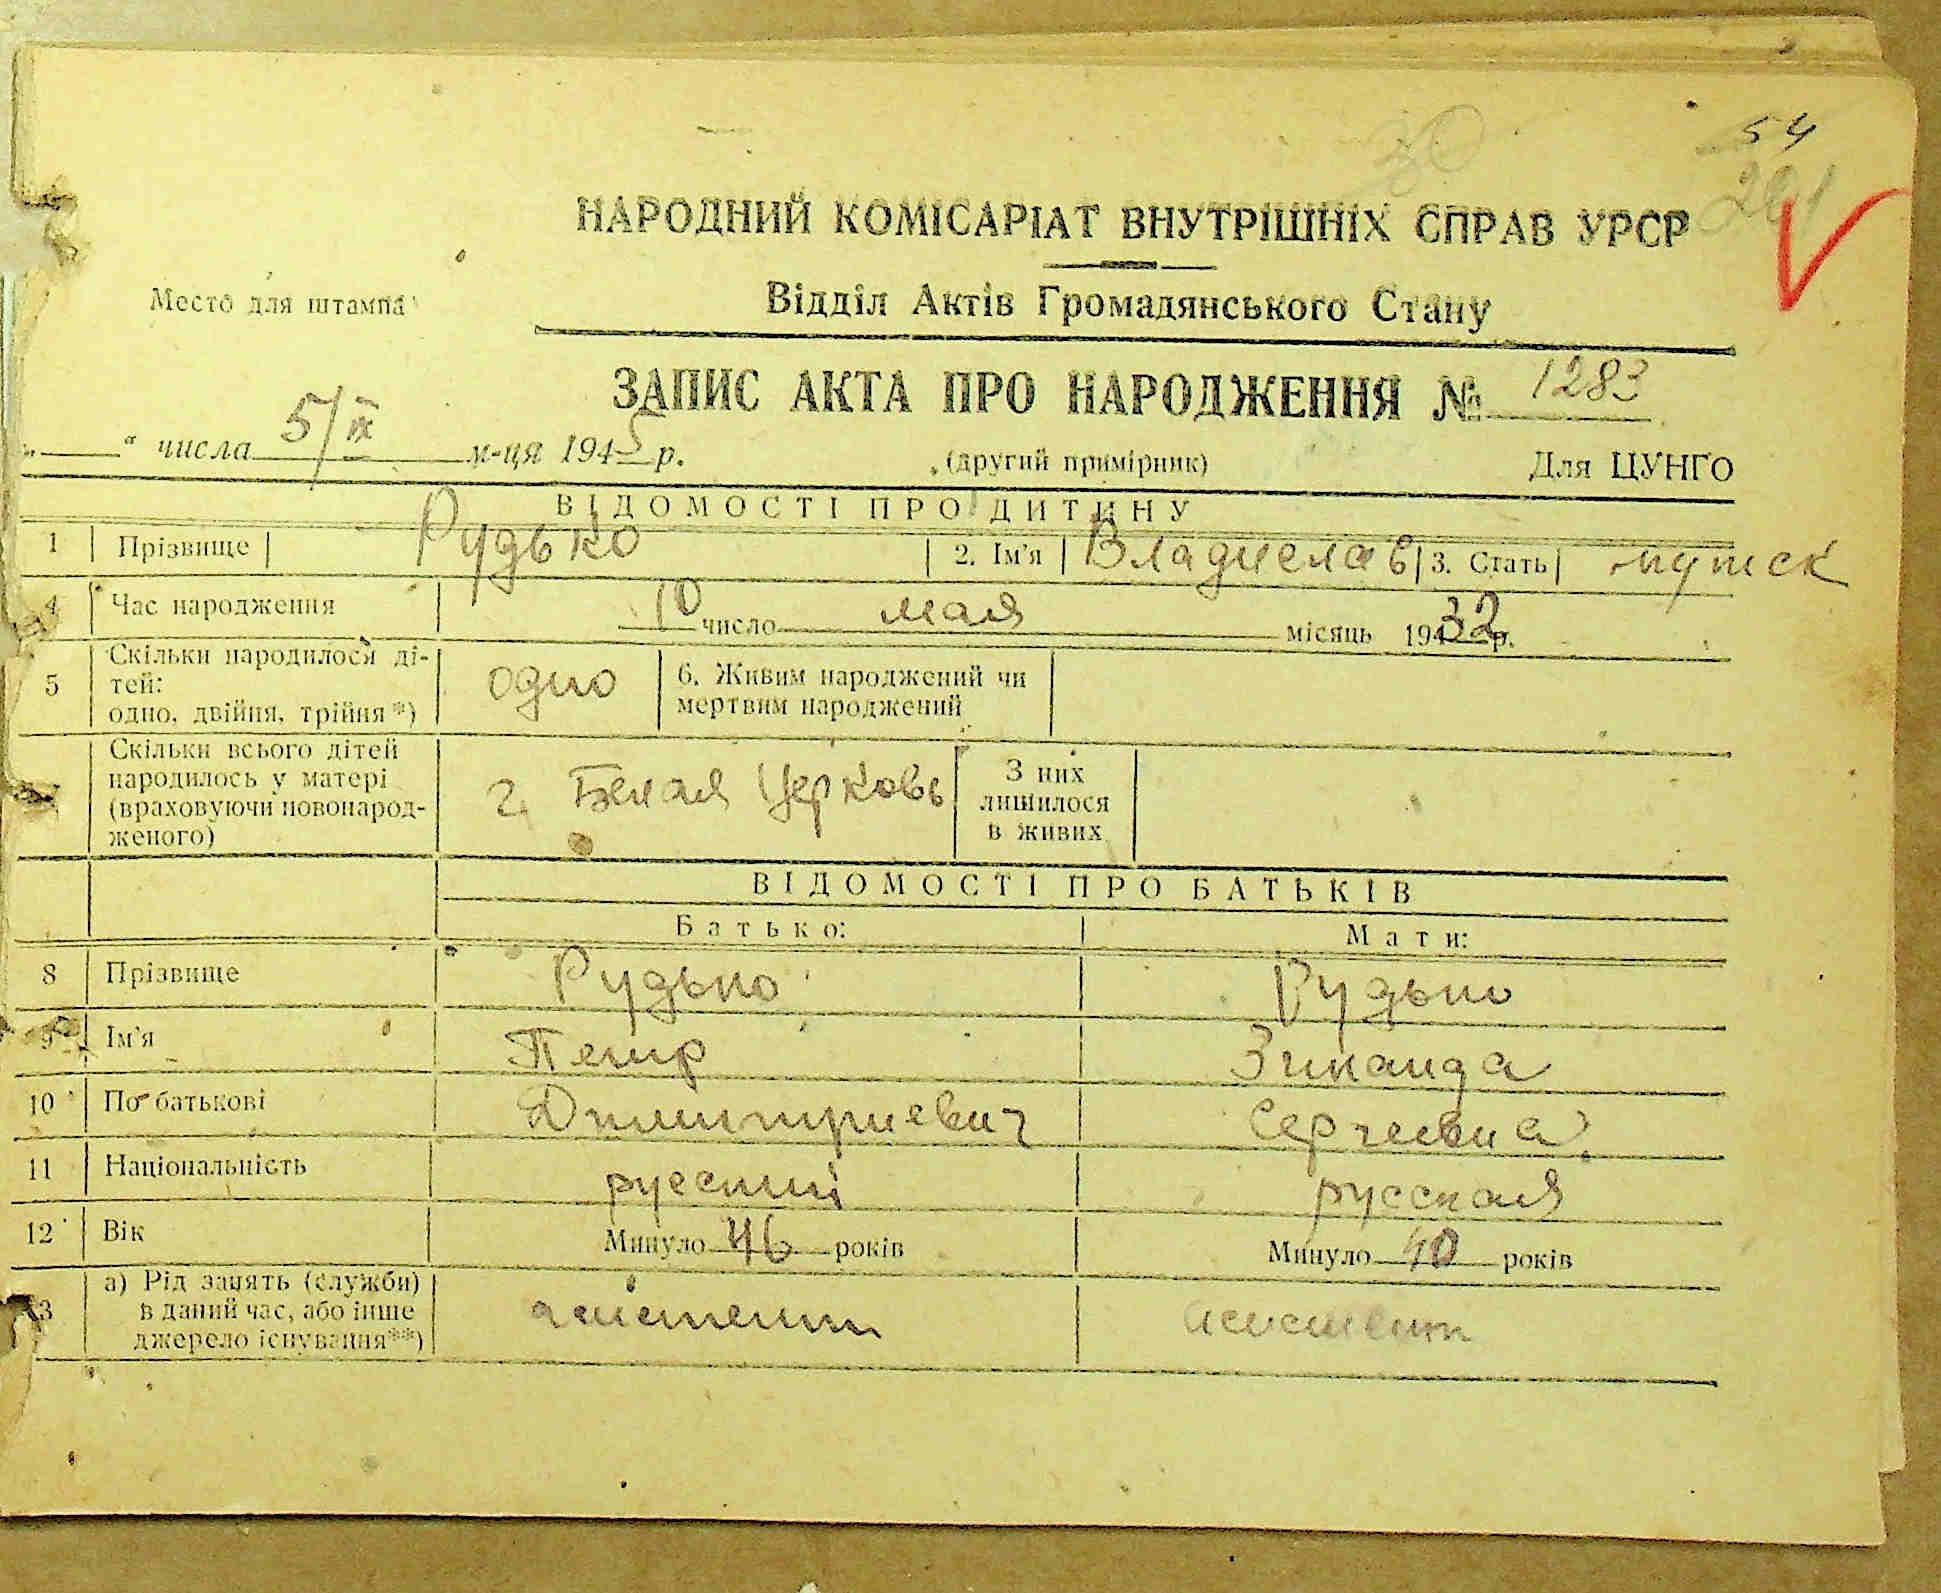 54
201
НАРОДНИЙ КОМІСАРІАТ ВНУТРІШНІХ СПРАВ УРСР
Место для штампа
Відділ Актів Громадянського Стану
ЗАПИС АКТА ПРО НАРОДЖЕННЯ № 1283
„ “ числа 5/IX м-ця 1945 р.
(другий примірник) Для ЦУНГО
ВІДОМОСТІ ПРО ДИТИНУ
1 Прізвище Рудько 2. Ім'я Владислав 3. Стать мужск
4 Час народження 10 число мая місяць 19432 р.
5 Скільки народилося ді-
тей:
одно, двійня, трійня*)
одно
6. Живим народжений чи
мертвим народжений
Скільки всього дітей
народилось у матері
(враховуючи новонарод-
женого)
г. Белая Церковь
З них
лишилося
в живих
ВІДОМОСТІ ПРО БАТЬКІВ
Батько: Мати:
8 Прізвище Рудько Рудько
9 Ім'я Петр Зинаида
10 По батькові Дмитриевич Сергеевна
11 Національність русский русская
12 Вік Минуло 46 років Минуло 40 років
13 а) Рід занять (служби)
в даний час, або інше
джерело існування**)
асистент асистент